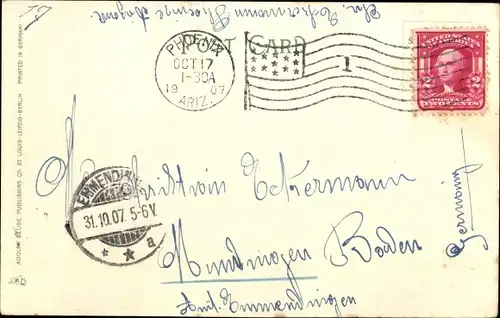 Chr. Eckermann Phoenix Arizona
POST CARD
PHOENIX
OCT 17
1-30A
1907
ARIZ.
1
UNITED STATES
2 2
TWO CENTS
Christian Eckermann
EMMENDINGEN
31.10.07. 5-6V.
* * a
Mundingen Baden
Amt. Emmendingen
Germany
ADOLPH SELIGE PUBLISHING CO. ST LOUIS-LEIPZIG-BERLIN. PRINTED IN GERMANY